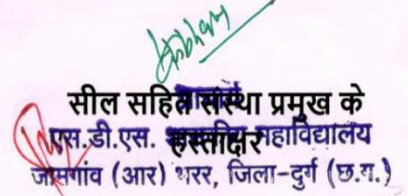 सील सहित संस्था प्रमुख के
हस्ताक्षर
एस.डी.एस. महाविद्यालय
जामगांव (आर) जिला-दुर्ग (छ.ग.)